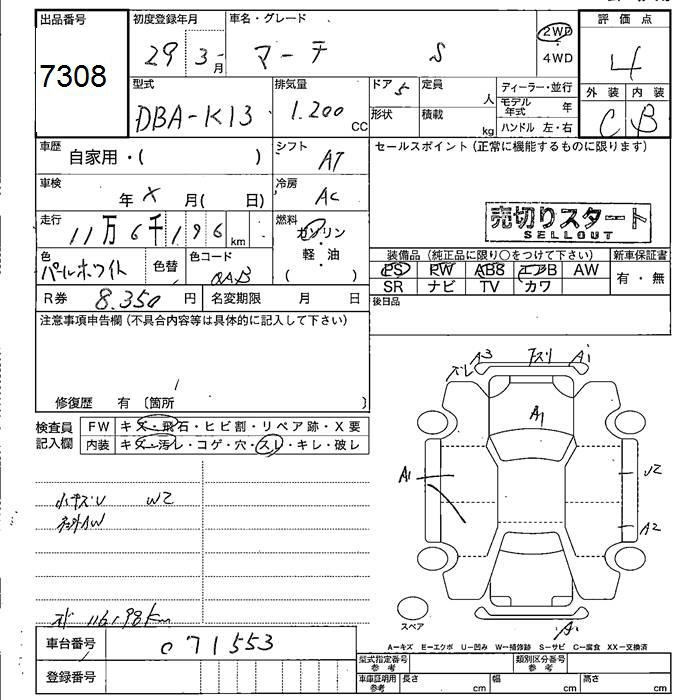 出品番号 初度登録年月 車名・グレード 評価点
7308 29 3月 マーチ S 2WD・4WD 4
型式 排気量 ドア 5 定員 人 ディーラー・並行 外装 内装
DBA-K13 1.200 CC 形状 積載 kg モデル年式 年 C B
ハンドル 左・右
車歴 自家用・( ) シフト AT セールスポイント(正常に機能するものに限ります)
車検 年 X 月( 日) 冷房 AC
走行 11万6千196km 燃料 ガソリン・軽・油 ( )
売切りスタート
SELLOUT
色 パールホワイト 色替 色コード QAB
装備品(純正品に限り○をつけて下さい) 新車保証書
PS PW ABS エアB AW 有・無
SR ナビ TV カワ
R券 8.350円 名変期限 月 日 後日品
注意事項申告欄(不具合内容等は具体的に記入して下さい)
修復歴 有 〔箇所 〕
検査員記入欄 FW キズ・飛石・ヒビ割・リペア跡・X要
内装 キズ・汚レ・コゲ・穴・スレ・キレ・破レ
小キズU W2
116198km
A3 A1
A1
A1 U2
A2
スペア A1
車台番号 071553
A-キズ E-エクボ U-凹み W-補修跡 S-サビ C-腐食 XX-交換済
型式指定番号参考 類別区分番号参考
登録番号 車庫証明用参考 長さ cm 幅 cm 高さ cm